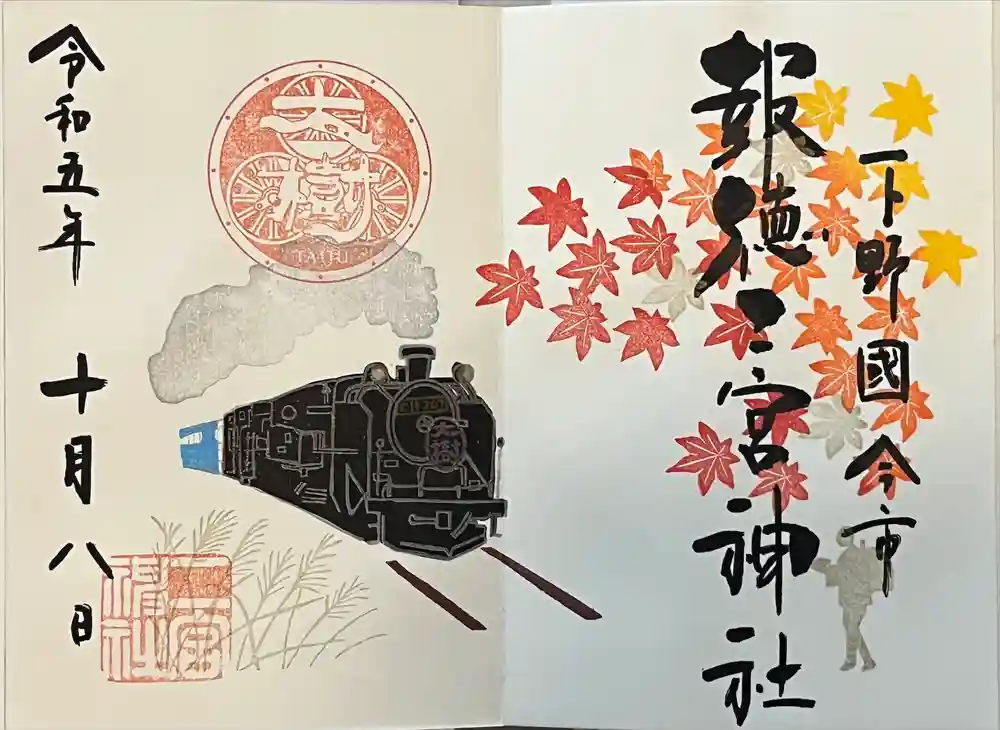 下野國今市
報徳二宮神社
大樹
TAIJU
C11 207
大樹
二宮神社
令和五年 十月八日